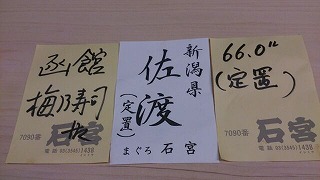 函館
梅乃寿司
7090番
石宮
電話 03(3545)1438
新潟県
佐渡
(定置)
まぐろ 石宮
66.0
(定置)
7090番
石宮
電話 03(3545)1438